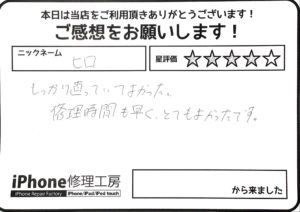 本日は当店をご利用頂きありがとうございます！
ご感想をお願いします！
ニックネーム
ヒロ
星評価 ☆☆☆☆☆
しっかり直っていてよかった。
修理時間も早く、とてもよかったです。
iPhone修理工房
iPhone Repair Factory iPhone/iPad/iPod touch
から来ました